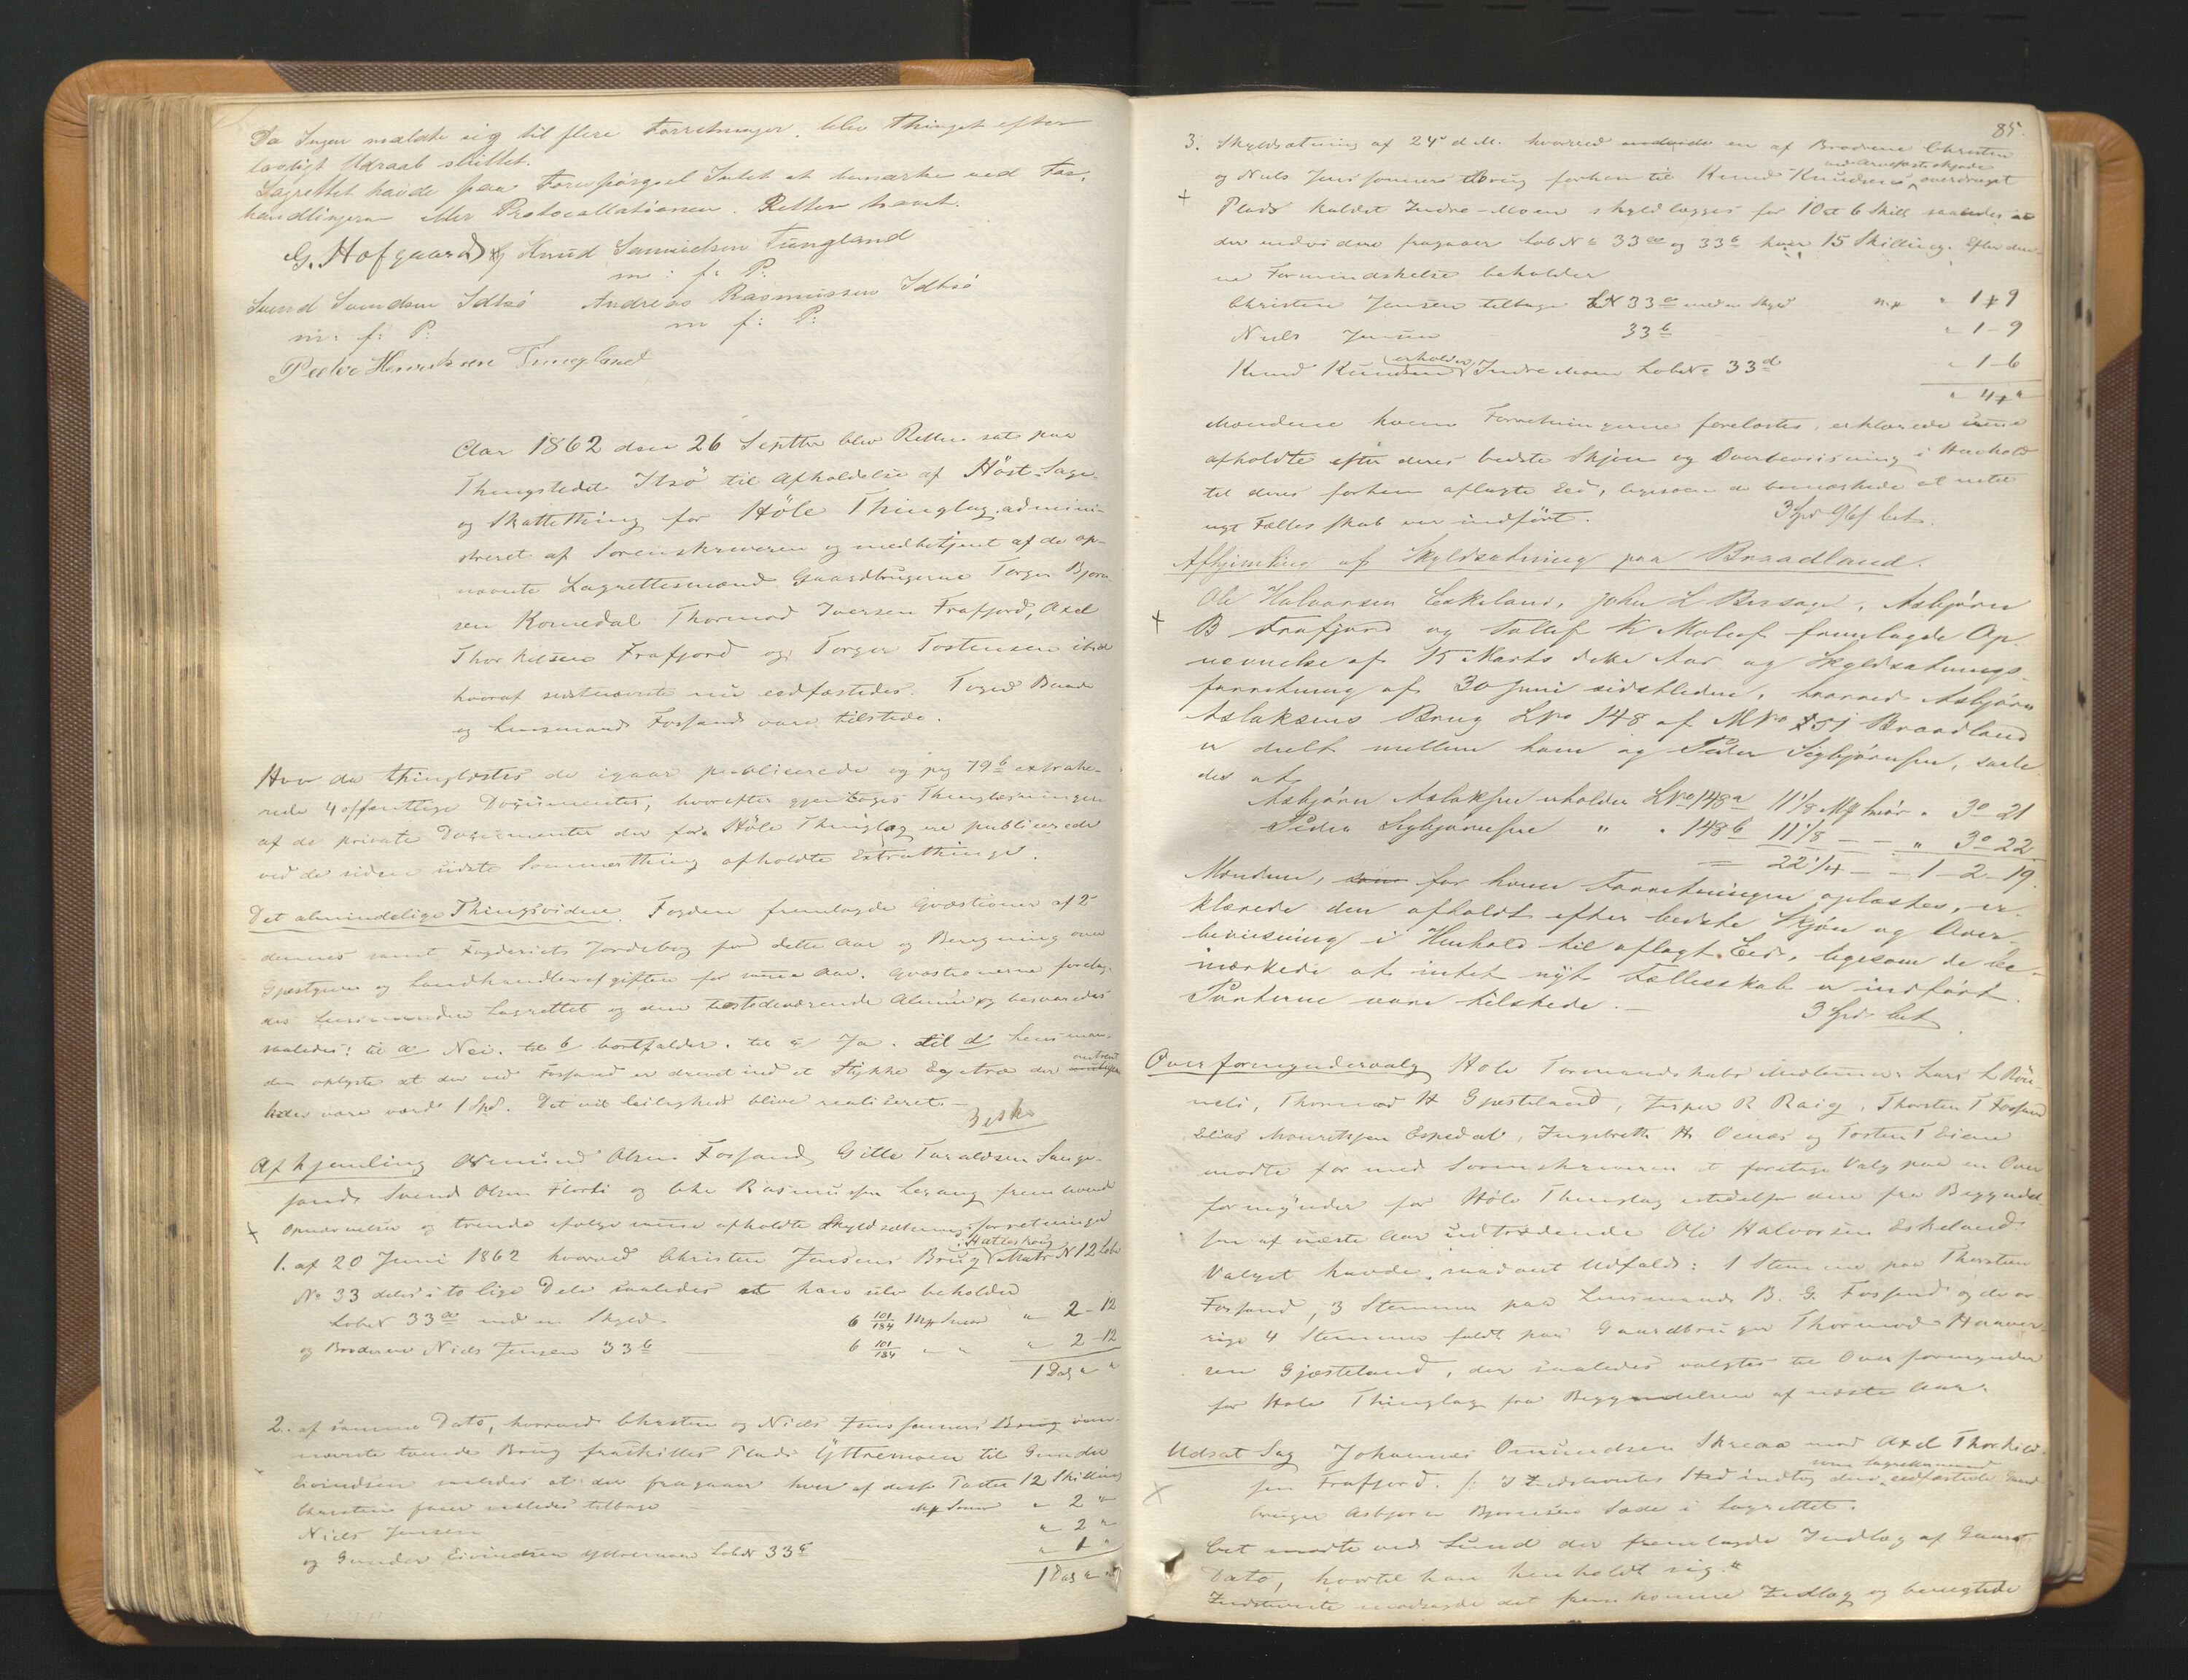 Da Ingen meldte sig til flere Forretninger, blev Thinget efter
lovligt Udraab sluttet.
Lagrettet havde paa Forespörgsel Intet at bemærke ved For-
handlingerne eller Protocollationen. Retten hævet.
G. Hofgaard Knud Samuelsen Tungland
m: f: P:
Svend Svendsen Idtsö Andreas Rasmussen Idtsö
m: f: P: m f: P:
Peder Henriksen Tungland
Aar 1862 den 26 Septbr blev Retten sat paa
Thingstedet Itsö til Afholdelse af Höst-Sage-
og Skattething for Höle Thinglag, admini-
streret af Sorenskriveren og medbetjent af de op-
nævnte Lagrettesmænd Gaardbrugerne Torger Bjørn-
sen Kommedal Thormod Iversen Frafjord, Axel
Thorkelsen Frafjord og Torger Tostensen ibid
hvoraf sidstnævnte nu edfæstedes. Foged Bonde
og Lensmand Fossand vare tilstede.
Hvor da thinglæstes de igaar publicerede og pag 79b extrahe-
rede 4 offentlige Documenter, hvorefter gjentoges Thinglæsningen
af de private Documenter der for Höle Thinglag ere publicerede
ved de siden sidste Sommerthing afholdte Extrathinge.
Det almindelige Thingsvidne. Fogden fremlagde Qvæstioner af 2
dennes samt Fogderiets Jordebog for dette Aar og Beregning over
Gjestgiver og Landhandlerafgiften for samme Aar. Qvæstionerne forelag-
des Lensmanden Lagrettet og den tilstedeværende Almue og besvaredes
saaledes: til a Nei. til b bortfalder. til c Ja. til d Lensman-
den oplyste at der ved Fossand er drevet ind et Stykke Egetræ der omtrent
kunde være værd 1 Spd. Det vil leilighed blive realiseret.
Besk.
Afhjemling Osmund Olsen Fossand, Gitle Taraldsen Sange-
sand, Svend Olsen Florli og Ole Rasmussen Lerang fremlagde
Opnævnelse og trende ifølge samme afholdte Skyldsætningsforretninger
1. af 20 Juni 1862 hvorved Christen Jensens Brug i Hatleskoug Matr N 12 Løbe
No 33 deles i to lige Dele saaledes at han selv beholder
LøbeN 33a med en Skyld 6 101/184 Mk Smør " 2-12
og Broderen Niels Jensen 33b 6 101/184 " " " 2-12
1 Dlr " "
2. af samme Dato, hvorved Christen og Niels Jenssønners Brug oven-
nævnte tvende Brug fraskilles Plads Yttremoen til Gunder
Eivindsen saaledes at der fragaaer hver af disse Parter 12 Skilling
Christen faaer saaledes tilbage Mk Smør " 2 "
Niels Jensen " 2 "
og Gunder Eivindsen Yttremoen LøbeN 33c " 1 "
1 Dlr " "
85.
3. Skyldsætning af 24de d.M. hvorved en af Brødrene Christen
og Niels Jenssønners Brug forhen til Knud Knudsen ved Arvefæsteskjøde overdraget
Plads kaldet Indre-Moen skyldlægges for 1 Ort 6 Skill saaledes at
der endvidere fragaaer LøbN 33a og 33b hver 15 Skilling. Efter den-
ne Formindskelse beholder
Christen Jensen tilbage LN 33a med en Skyld " 1 + 9
Niels Jensen 33b " 1 - 9
Knud Knudsen erholder Indre Moen LøbeN 33d " 1-6
" 4 + "
Mændene hvem Forretningerne forelæstes, erklærede disse
afholdte efter deres bedste Skjøn og Overbeviisning i Henhold
til deres forhen aflagte Eed, ligesom de bemærkede at intet
nyt Fællesskab var indført. 3 Spd 96 s bet.
Afhjemling af Skyldsætning paa Braadland.
Ole Halvorsen Eskeland, John L Bersage, Asbjørn
B Frafjord og Tollef K Molaug fremlagde Op-
nævnelse af 15 Marts dette Aar og Skyldsætnings-
forretning af 30 Juni sidstleden, hvorved Asbjørn
Aslaksens Brug LNo 148 af MNo 51 Braadland
er deelt mellem ham og Peder Sigbjørnsen, saale-
des at
Asbjørn Aslaksen erholder LNo 148a 11 1/8 Mk Smør " 3 o 21
Peder Sigbjørnsen " " 148b 11 1/8 - - " 3 o 22
= 22 1/4 - - 1 - 2 - 19.
Mændene, for hvem Forretningen oplæstes, er-
klærede den afholdt efter bedste Skjøn og Over-
beviisning i Henhold til aflagt Eed, ligesom de be-
mærkede at intet nyt Fællesskab er indført.
Parterne vare tilstede. 3 Spd bet.
Overformyndervalg Hole Formandskabs Medlemmer Lars L Röi-
neli, Thormod H Gjesteland, Jesper R Raig, Thorsten T Fossand
Elias Mauritzsen Espedal, Ingebreth H Oenæs og Tosten T Eiene
mødte for med Sorenskriveren at foretage Valg paa en Over
formynder for Höle Thinglag istedetfor den fra Begyndel-
sen af næste Aar udtrædende Ole Halvorsen Eskeland.
Valget havde saadant Udfald: 1 Stemme paa Thorsten
Fossand, 3 Stemmer paa Lensmand B. G. Fossand og de øv-
rige 4 Stemmer faldt paa Gaardbruger Thormod Haaver-
sen Gjesteland, der saaledes valgtes til Overformynder
for Hole Thinglag fra Begyndelsen af næste Aar.
Udsat Sag Johannes Omundsen Skreaa mod Axel Thorkild-
sen Frafjord. /: I Indstevntes Sted indtog den som Lagrettemand edfæstede Gaard
bruger Asbjørn Bjørnsen Sæde i Lagrettet.
Cit mødte ved Lund der fremlagde Indlæg af Gaars
Dato, hvortil han henholdt sig.
Indstevnte modsagde det fremkomne Indlæg og benegtede